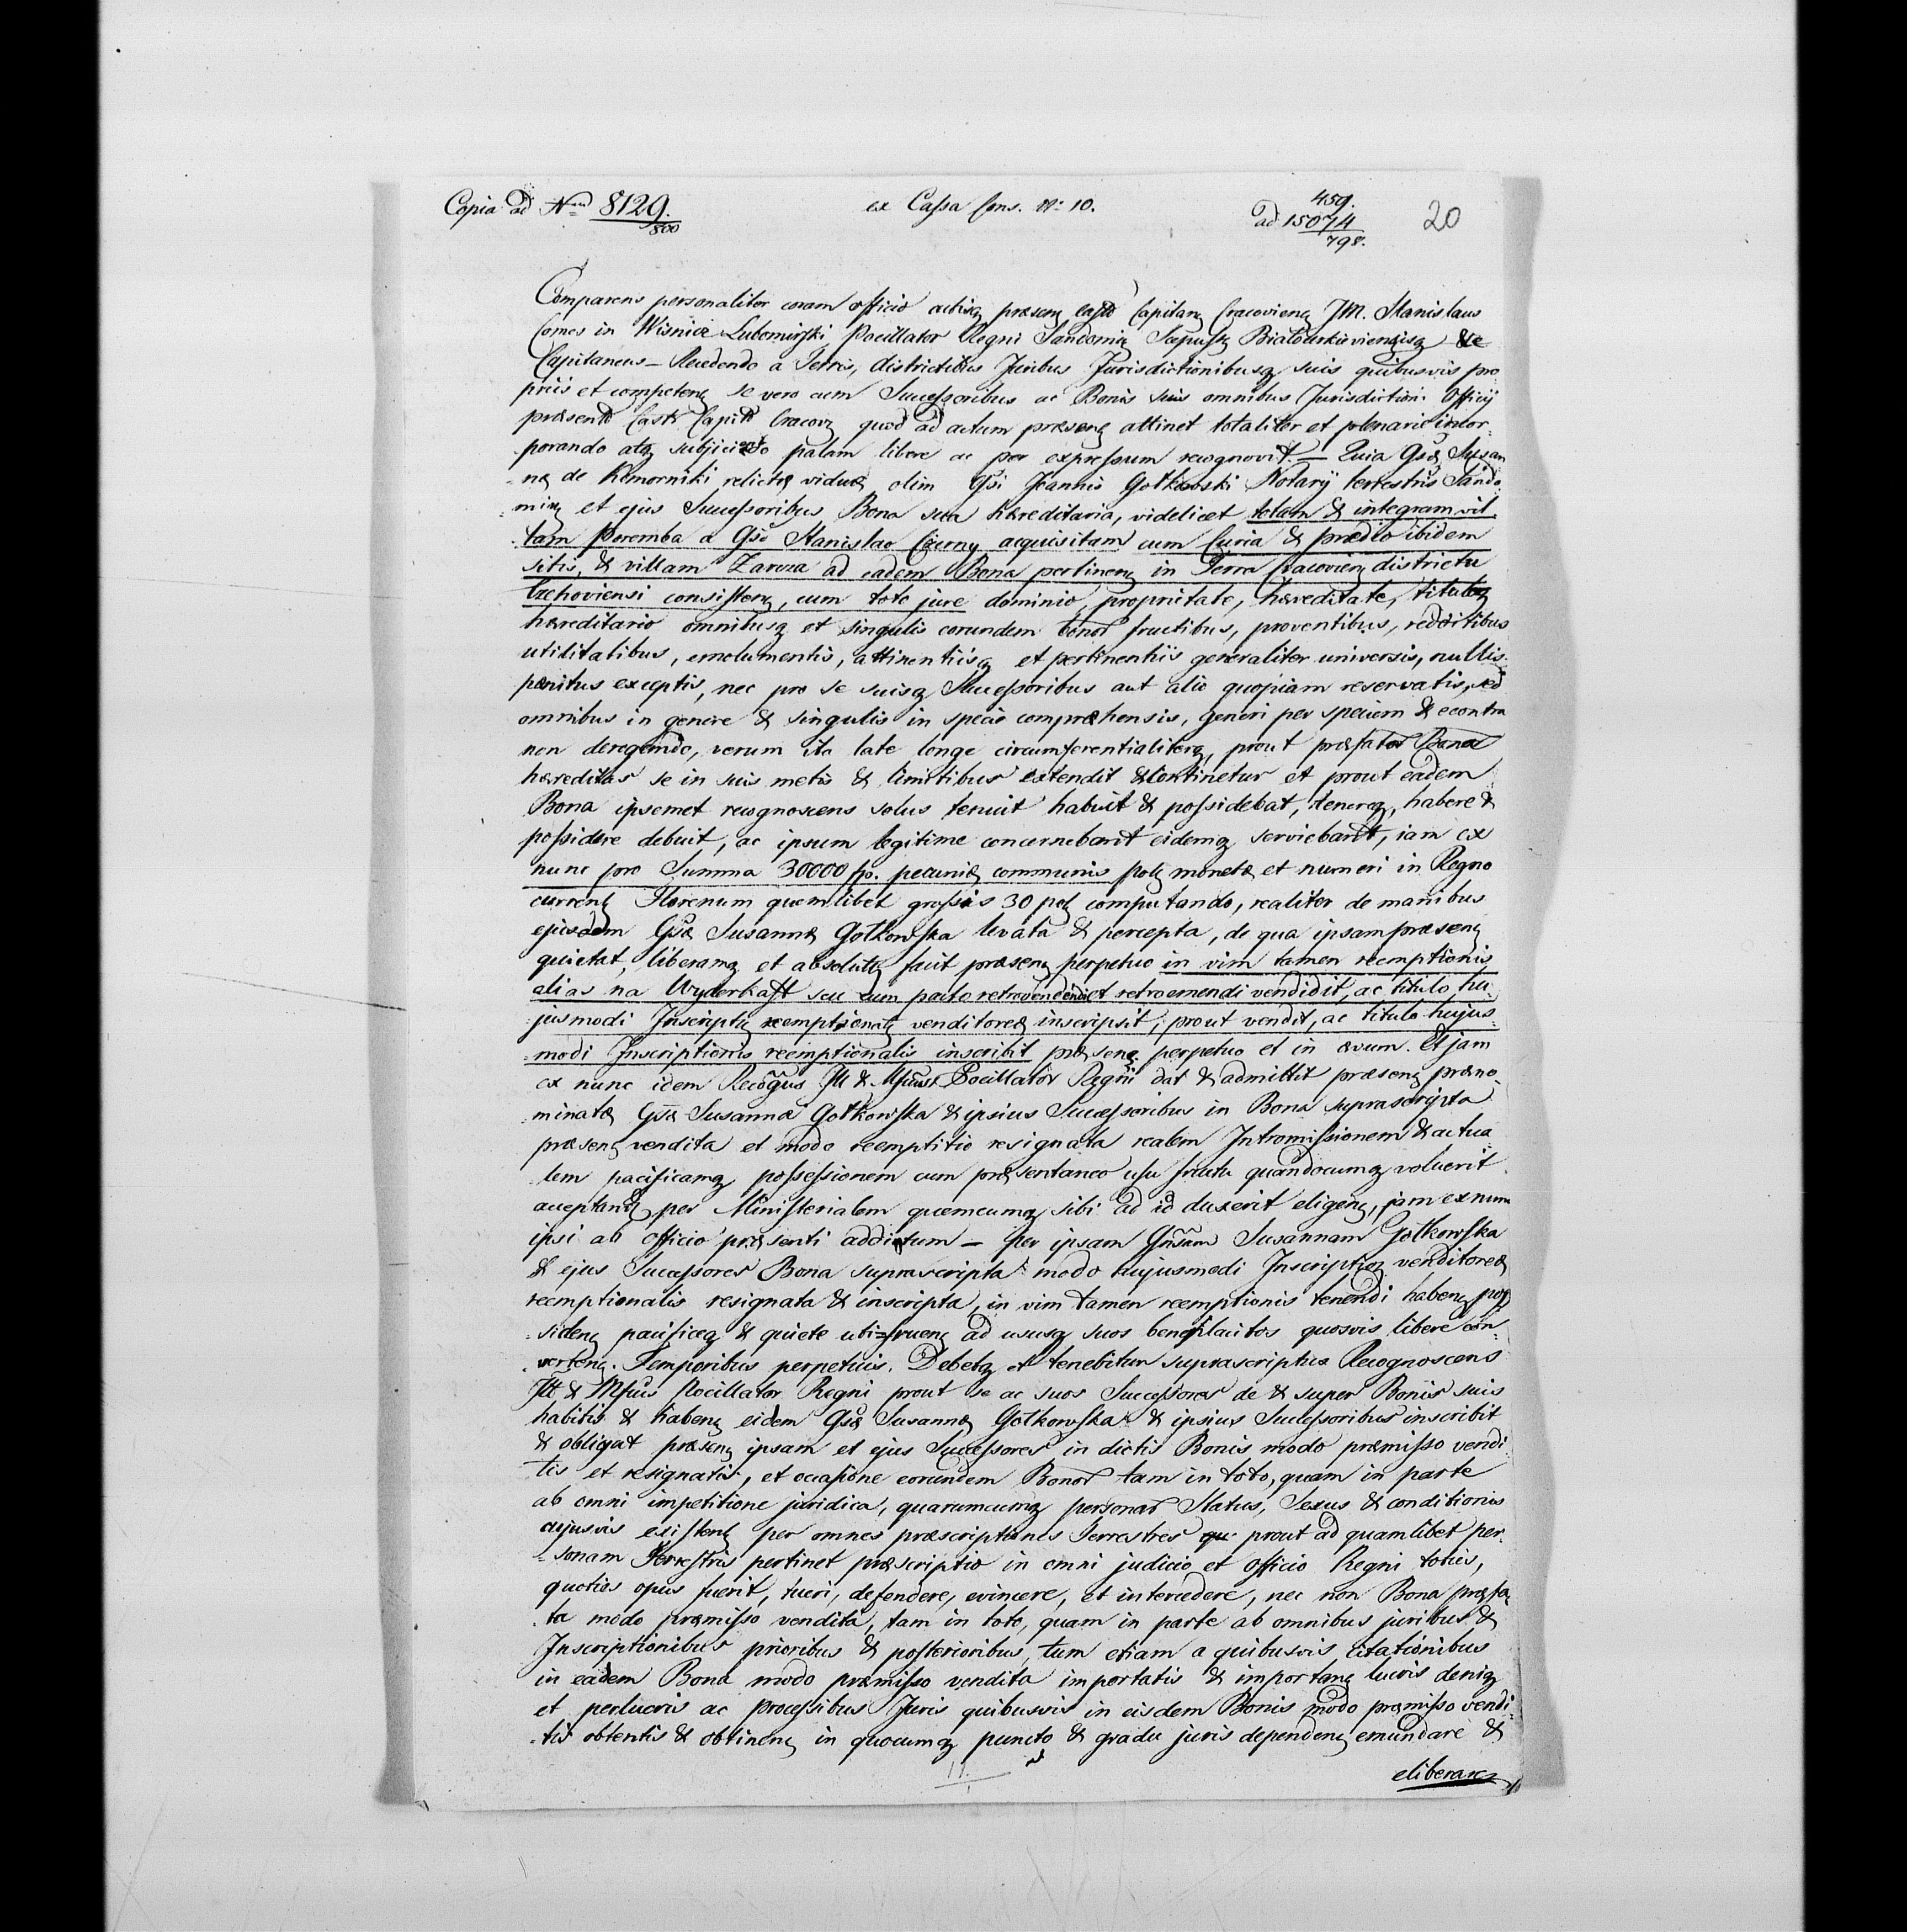 Copia ad Nrm 8129. ex Cassa Cons. N: 10. 459.
800 ad 15074 20
798.
Comparens personaliter coram officio actisq præsenq Castq Capitanq Cracovienq JM. Stanislaus
Comes in Wisnicz Lubomirski Pocillator Regni Sandomirq Scepusq Białocerkieviensisq &c
Capitaneus – Recedendo a Terris, districtibus Juribus Jurisdictionibusq suis quibusvis pro
priis et competenq se vero cum Successoribus ac Bonis suis omnibus Jurisdictioni Officij
præsentis Castr Capit Cracovq quod ad actum præsenq attinet totaliter et plenarie incor-
porando atq subjiciendo palam libere ac per expressum recognovit. – Quia Gsæ Susan
-næ de Komorniki relictæ viduæ olim Gsi Joannis Gotkowski Notarij terrestris Sando
-mirq et ejus Successoribus Bona sua hæreditaria, videlicet totam & integram vil
-lam Poremba a Gso Stanislao Czerny acquisitam cum Curia & prædio ibidem
sitis, & villam Zawza ad eadem Bona pertinenq in Terra Cracovienq districtu
Czchoviensi consistenq, cum toto jure dominio, proprietate, hæreditate, tituloq
hæreditario omnibusq et singulis eorundem bonor fructibus, proventibus, redditibus
utilitatibus, emolumentis, attinentiisq et pertinentiis generaliter universis, nullis
pænitus exceptis, nec pro se suisq Successoribus aut alio quopiam reservatis, sed
omnibus in genere & singulis in specie comprehensis, generi per speciem & econtra
non derogando, verum ita late longe circumferentialiterq, prout præfator Bonor
hæreditas se in suis metis & limitibus extendit & continetur et prout eadem
Bona ipsemet recognoscens solus tenuit habuit & possidebat, tenereq, habere &
possidere debuit, ac ipsum legitime concernebant eidemq serviebant, iam ex
nunc pro Summa 30000 fp. pecuniæ communis polq monetæ et numeri in Regno
currenq Florenum quemlibet grossis 30 polq computando, realiter de manibus
ejusdem Gsæ Susannæ Gotkowska levata & percepta, de qua ipsam præsenq
quietat, liberamq et absolutq facit præsenq perpetuo in vim tamen reemptionis
alias na Wyderkaff seu cum pacto retrovendendi et retroemendi vendidit, ac titulo hu-
jusmodi Inscriptiq reemptionalq venditoreæ inscripsit, prout vendit, ac titulo hujus-
-modi Inscriptionis reemptionalis inscribit præsenq perpetuo et in ævum. Et jam
ex nunc idem Recogus Ill & Mficus Pocillator Regni dat & admittit præsenq præno
-minatæ Gsæ Susannæ Gotkowska & ipsius Successoribus in Bona suprascripta
præsenq vendita et modo reemptitio resignata realem Intromissionem & actua
-lem pacificamq possessionem cum præsentaneo usu fructu quandocumq voluerit
acceptandq per Ministerialem quemcumq sibi ad id duxerit eligenq, jam ex nunc
ipsi ab officio præsenti additum – per ipsam Gnsam Susannam Gotkowska
& ejus Successores Bona suprascripta modo hujusmodi Inscriptioq venditoreæ
reemptionalis resignata & inscripta, in vim tamen reemptionis tenendi habenq pos
-sidenq pacificeq & quiete uti=fruenq ad ususq suos beneplacitos quosvis libere con-
-vertenq. Temporibus perpetuis. Debetq et tenebitur suprascriptus Recognoscens
Ill & Mficus Pocillator Regni prout se ac suos Successores de & super Bonis suis
habitis & habenq eidem Gsæ Susannæ Gotkowska & ipsius Successoribus inscribit
& obligat præsenq ipsam et ejus Successores in dictis Bonis modo præmisso vendi
-tis et resignatis, et occasione eorundem Bonor tam in toto, quam in parte
ab omni impetitione juridica, quarumcumq personar Status, Sexus & conditionis
cujusvis existenq per omnes præscriptiones Terrestres prout ad quamlibet per-
-sonam Terrestris pertinet præscriptio in omni judicio et officio Regni toties,
quoties opus fuerit, tueri, defendere, evincere, et intercedere, nec non Bona præfa
-ta modo præmisso vendita, tam in toto, quam in parte ab omnibus juribus &
Inscriptionibus prioribus & posterioribus, tum etiam a quibusvis citationibus
in eadem Bona modo præmisso vendita importatis & importanq lucris deniq
et perlucris ac processibus Juris quibusvis in eisdem Bonis modo præmisso vendi-
-tis obtentis & obtinenq in quocumq puncto & gradu juris dependenq emundare &
eliberare